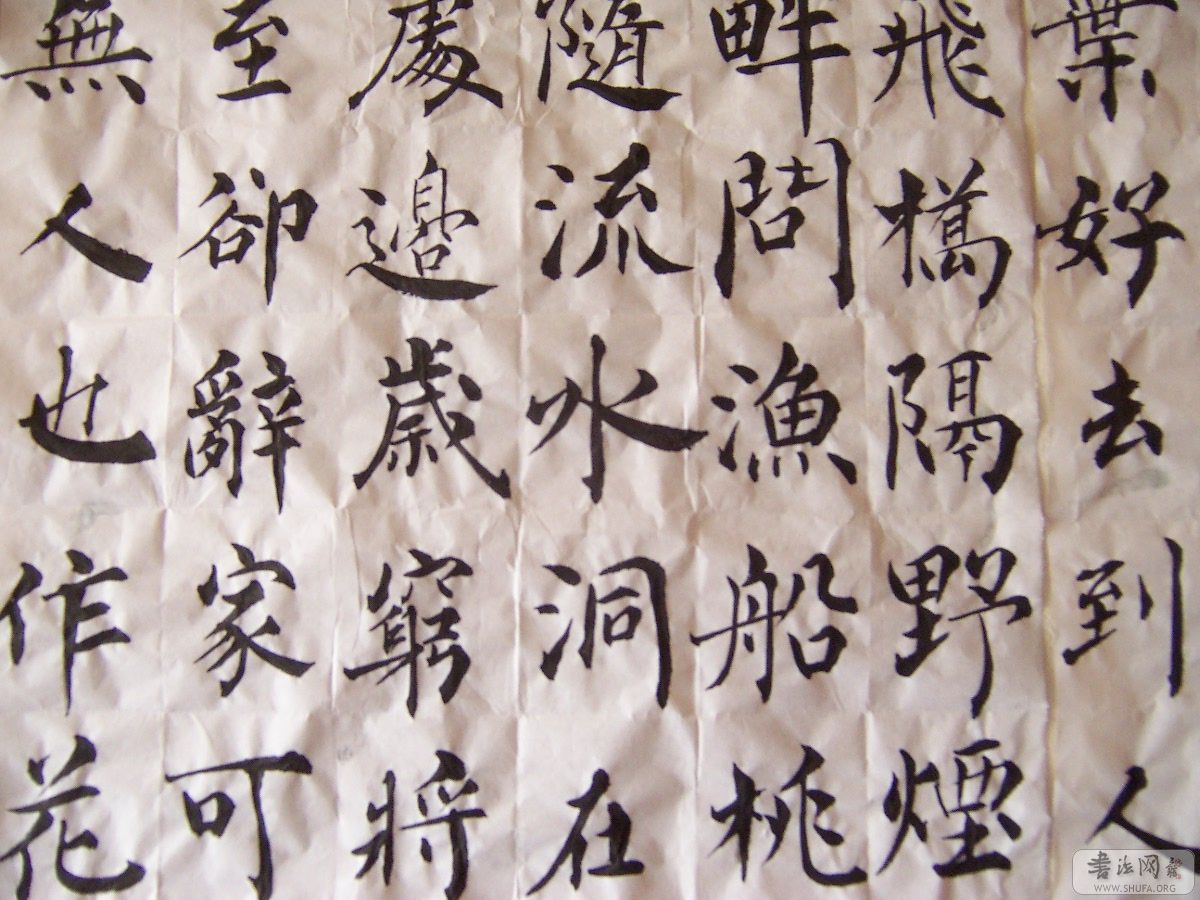 葉好去到人
飛橋隔野煙
畔問漁船桃
隨流水洞在
處邊歲窮將
至卻辭家可
無人也作花
書法网
WWW.SHUFA.ORG